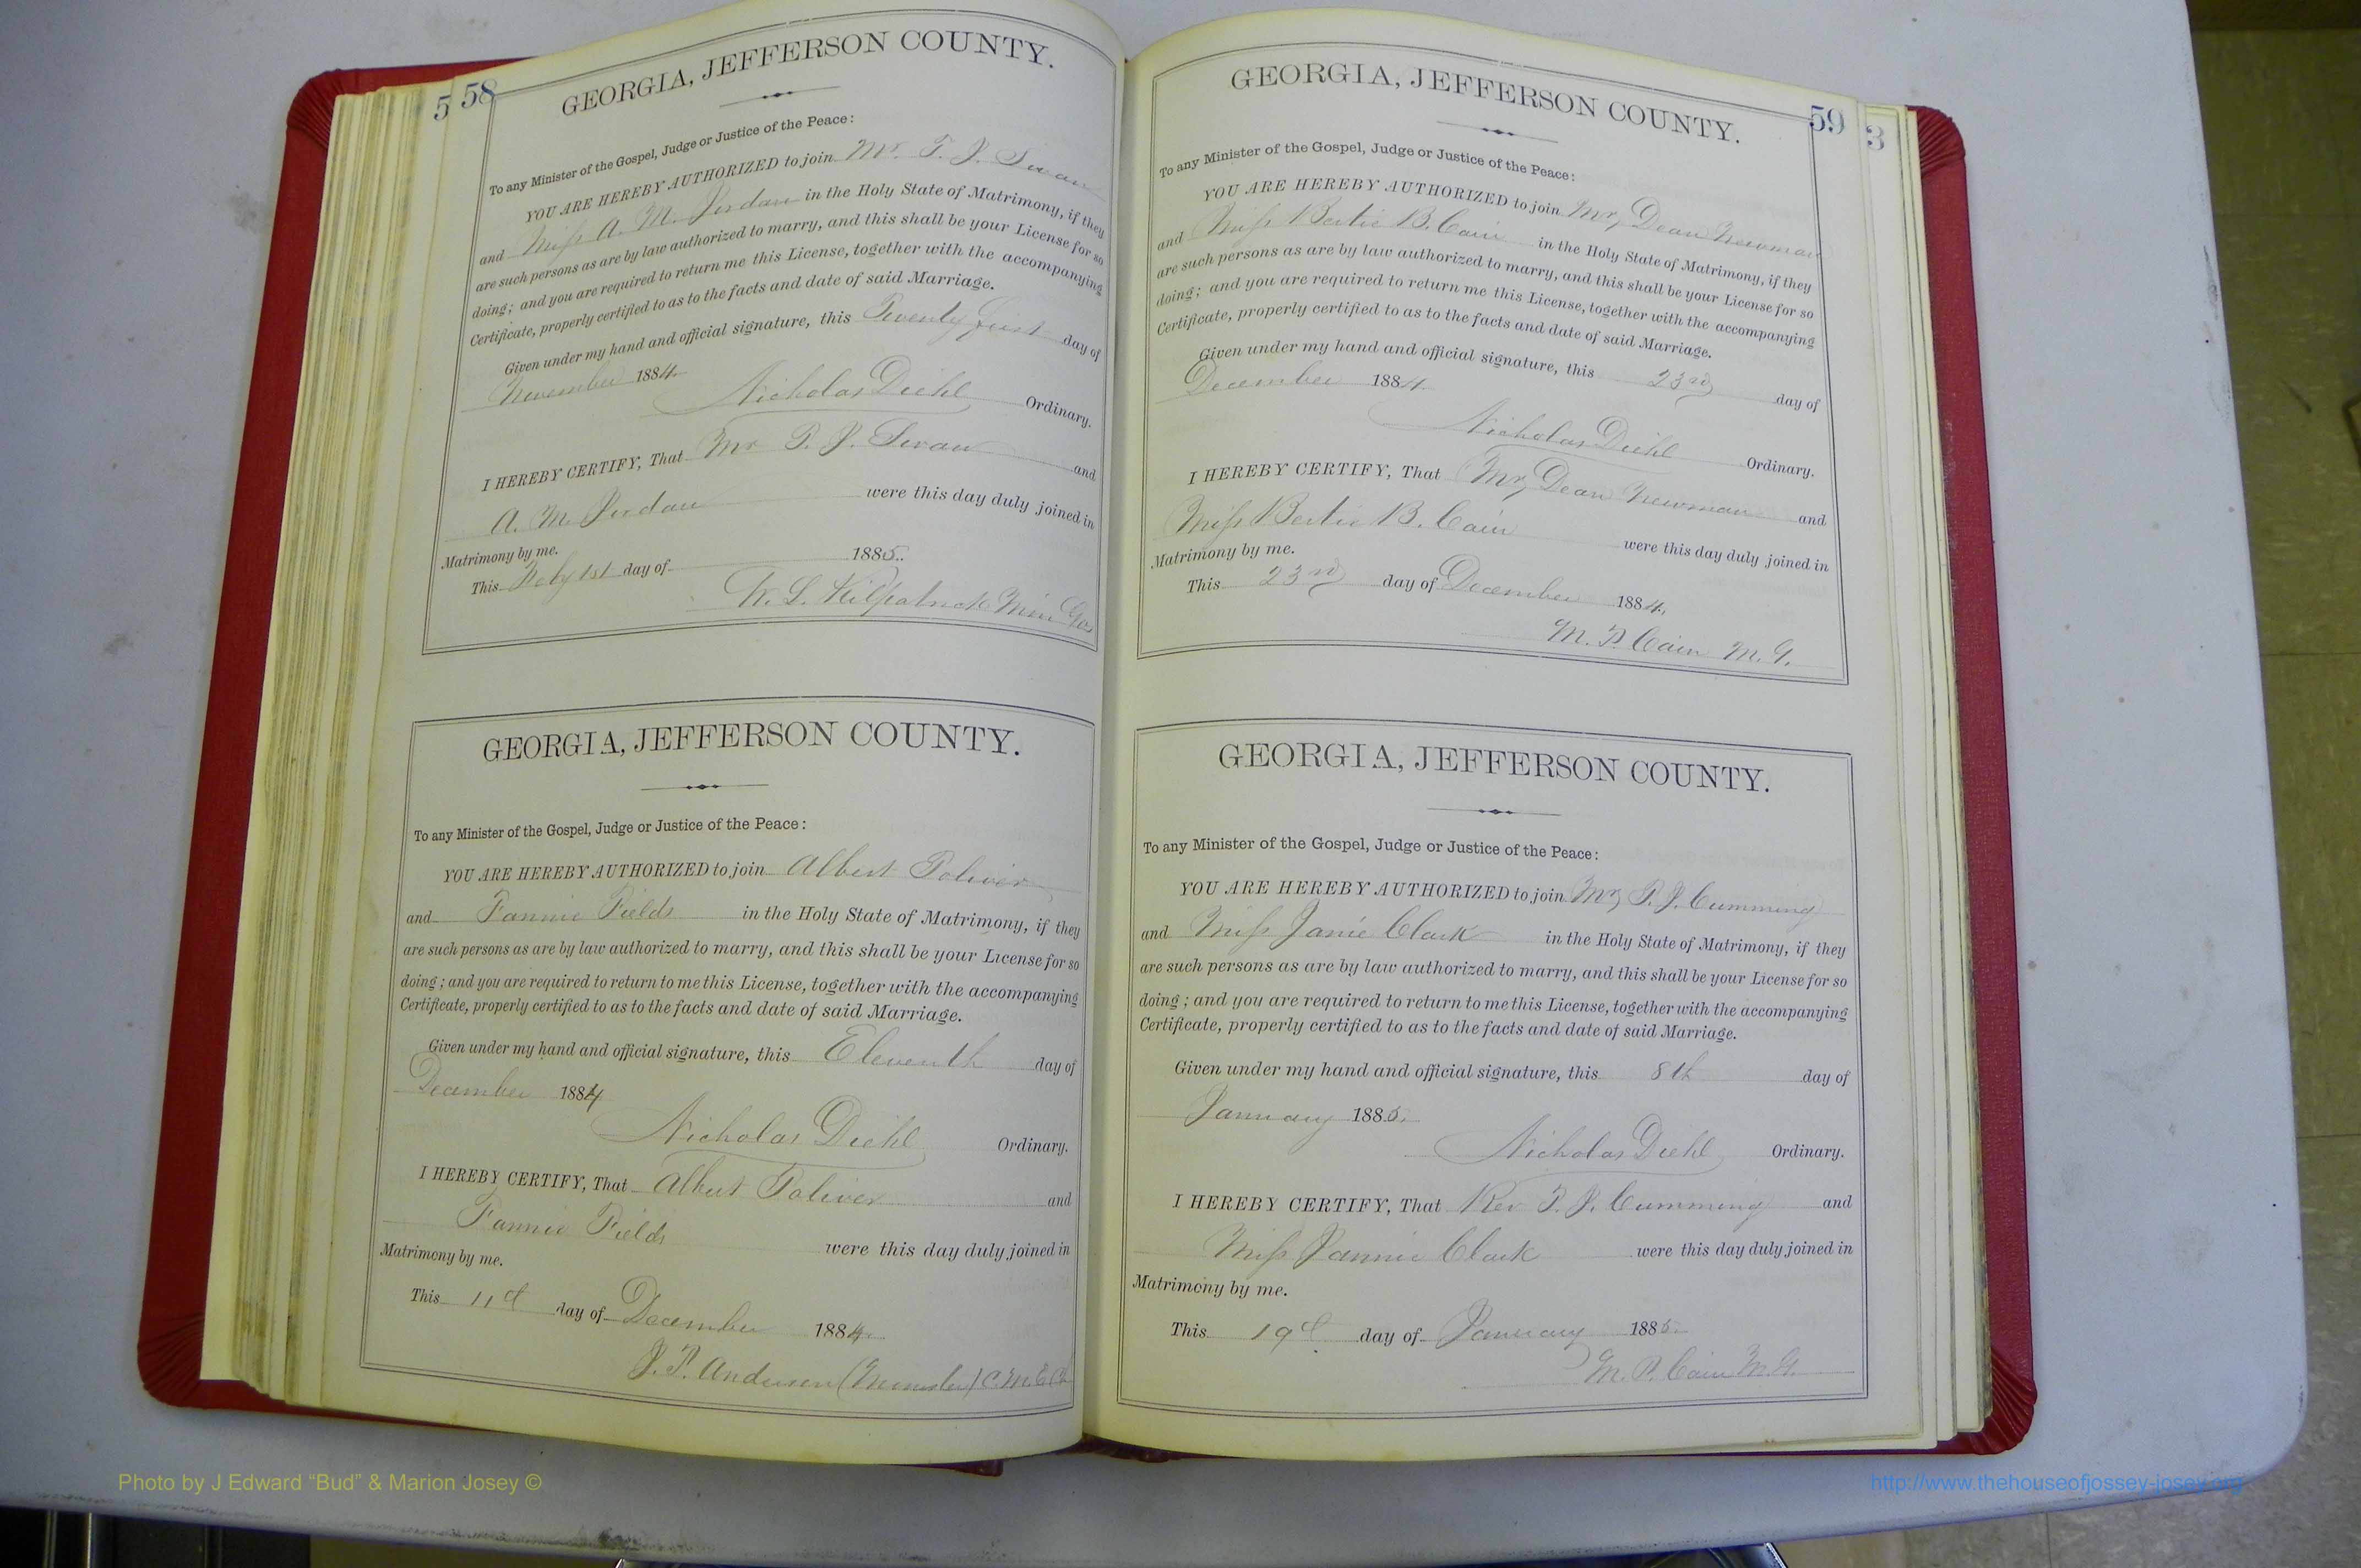 5 58
GEORGIA, JEFFERSON COUNTY.
To any Minister of the Gospel, Judge or Justice of the Peace:
YOU ARE HEREBY AUTHORIZED to join Mr. T. J. Swan
and Miss A. M. Jordan in the Holy State of Matrimony, if they
are such persons as are by law authorized to marry, and this shall be your License for so
doing; and you are required to return me this License, together with the accompanying
Certificate, properly certified to as to the facts and date of said Marriage.
Given under my hand and official signature, this Twenty first day of
November 1884.
Nicholas Diehl Ordinary.
I HEREBY CERTIFY, That Mr T. J. Swan and
A. M. Jordan were this day duly joined in
Matrimony by me.
This Feby 1st day of 1885.
W. L. Kilpatrick Min Gos
GEORGIA, JEFFERSON COUNTY.
To any Minister of the Gospel, Judge or Justice of the Peace:
YOU ARE HEREBY AUTHORIZED to join Albert Toliver
and Fannie Fields in the Holy State of Matrimony, if they
are such persons as are by law authorized to marry, and this shall be your License for so
doing; and you are required to return to me this License, together with the accompanying
Certificate, properly certified to as to the facts and date of said Marriage.
Given under my hand and official signature, this Eleventh day of
December 1884
Nicholas Diehl Ordinary.
I HEREBY CERTIFY, That Albert Toliver and
Fannie Fields were this day duly joined in
Matrimony by me.
This 11th day of December 1884.
J. P. Anderson (Minister) C.M.E.Ch
59 3
GEORGIA, JEFFERSON COUNTY.
To any Minister of the Gospel, Judge or Justice of the Peace:
YOU ARE HEREBY AUTHORIZED to join Mr, Dean Newman
and Miss Bertie B. Cain in the Holy State of Matrimony, if they
are such persons as are by law authorized to marry, and this shall be your License for so
doing; and you are required to return me this License, together with the accompanying
Certificate, properly certified to as to the facts and date of said Marriage.
Given under my hand and official signature, this 23rd day of
December 1884.
Nicholas Diehl Ordinary.
I HEREBY CERTIFY, That Mr, Dean Newman and
Miss Bertie B. Cain were this day duly joined in
Matrimony by me.
This 23rd day of December 1884.
M. P. Cain M.G.
GEORGIA, JEFFERSON COUNTY.
To any Minister of the Gospel, Judge or Justice of the Peace:
YOU ARE HEREBY AUTHORIZED to join Mr, P. J. Cumming
and Miss Janie Clark in the Holy State of Matrimony, if they
are such persons as are by law authorized to marry, and this shall be your License for so
doing; and you are required to return to me this License, together with the accompanying
Certificate, properly certified to as to the facts and date of said Marriage.
Given under my hand and official signature, this 8th day of
January 1885.
Nicholas Diehl Ordinary.
I HEREBY CERTIFY, That Rev P. J. Cumming and
Miss Jannie Clark were this day duly joined in
Matrimony by me.
This 19th day of January 1885.
M. P. Cain M.G.
Photo by J Edward “Bud” & Marion Josey ©
http://www.thehouseofjossey-josey.org